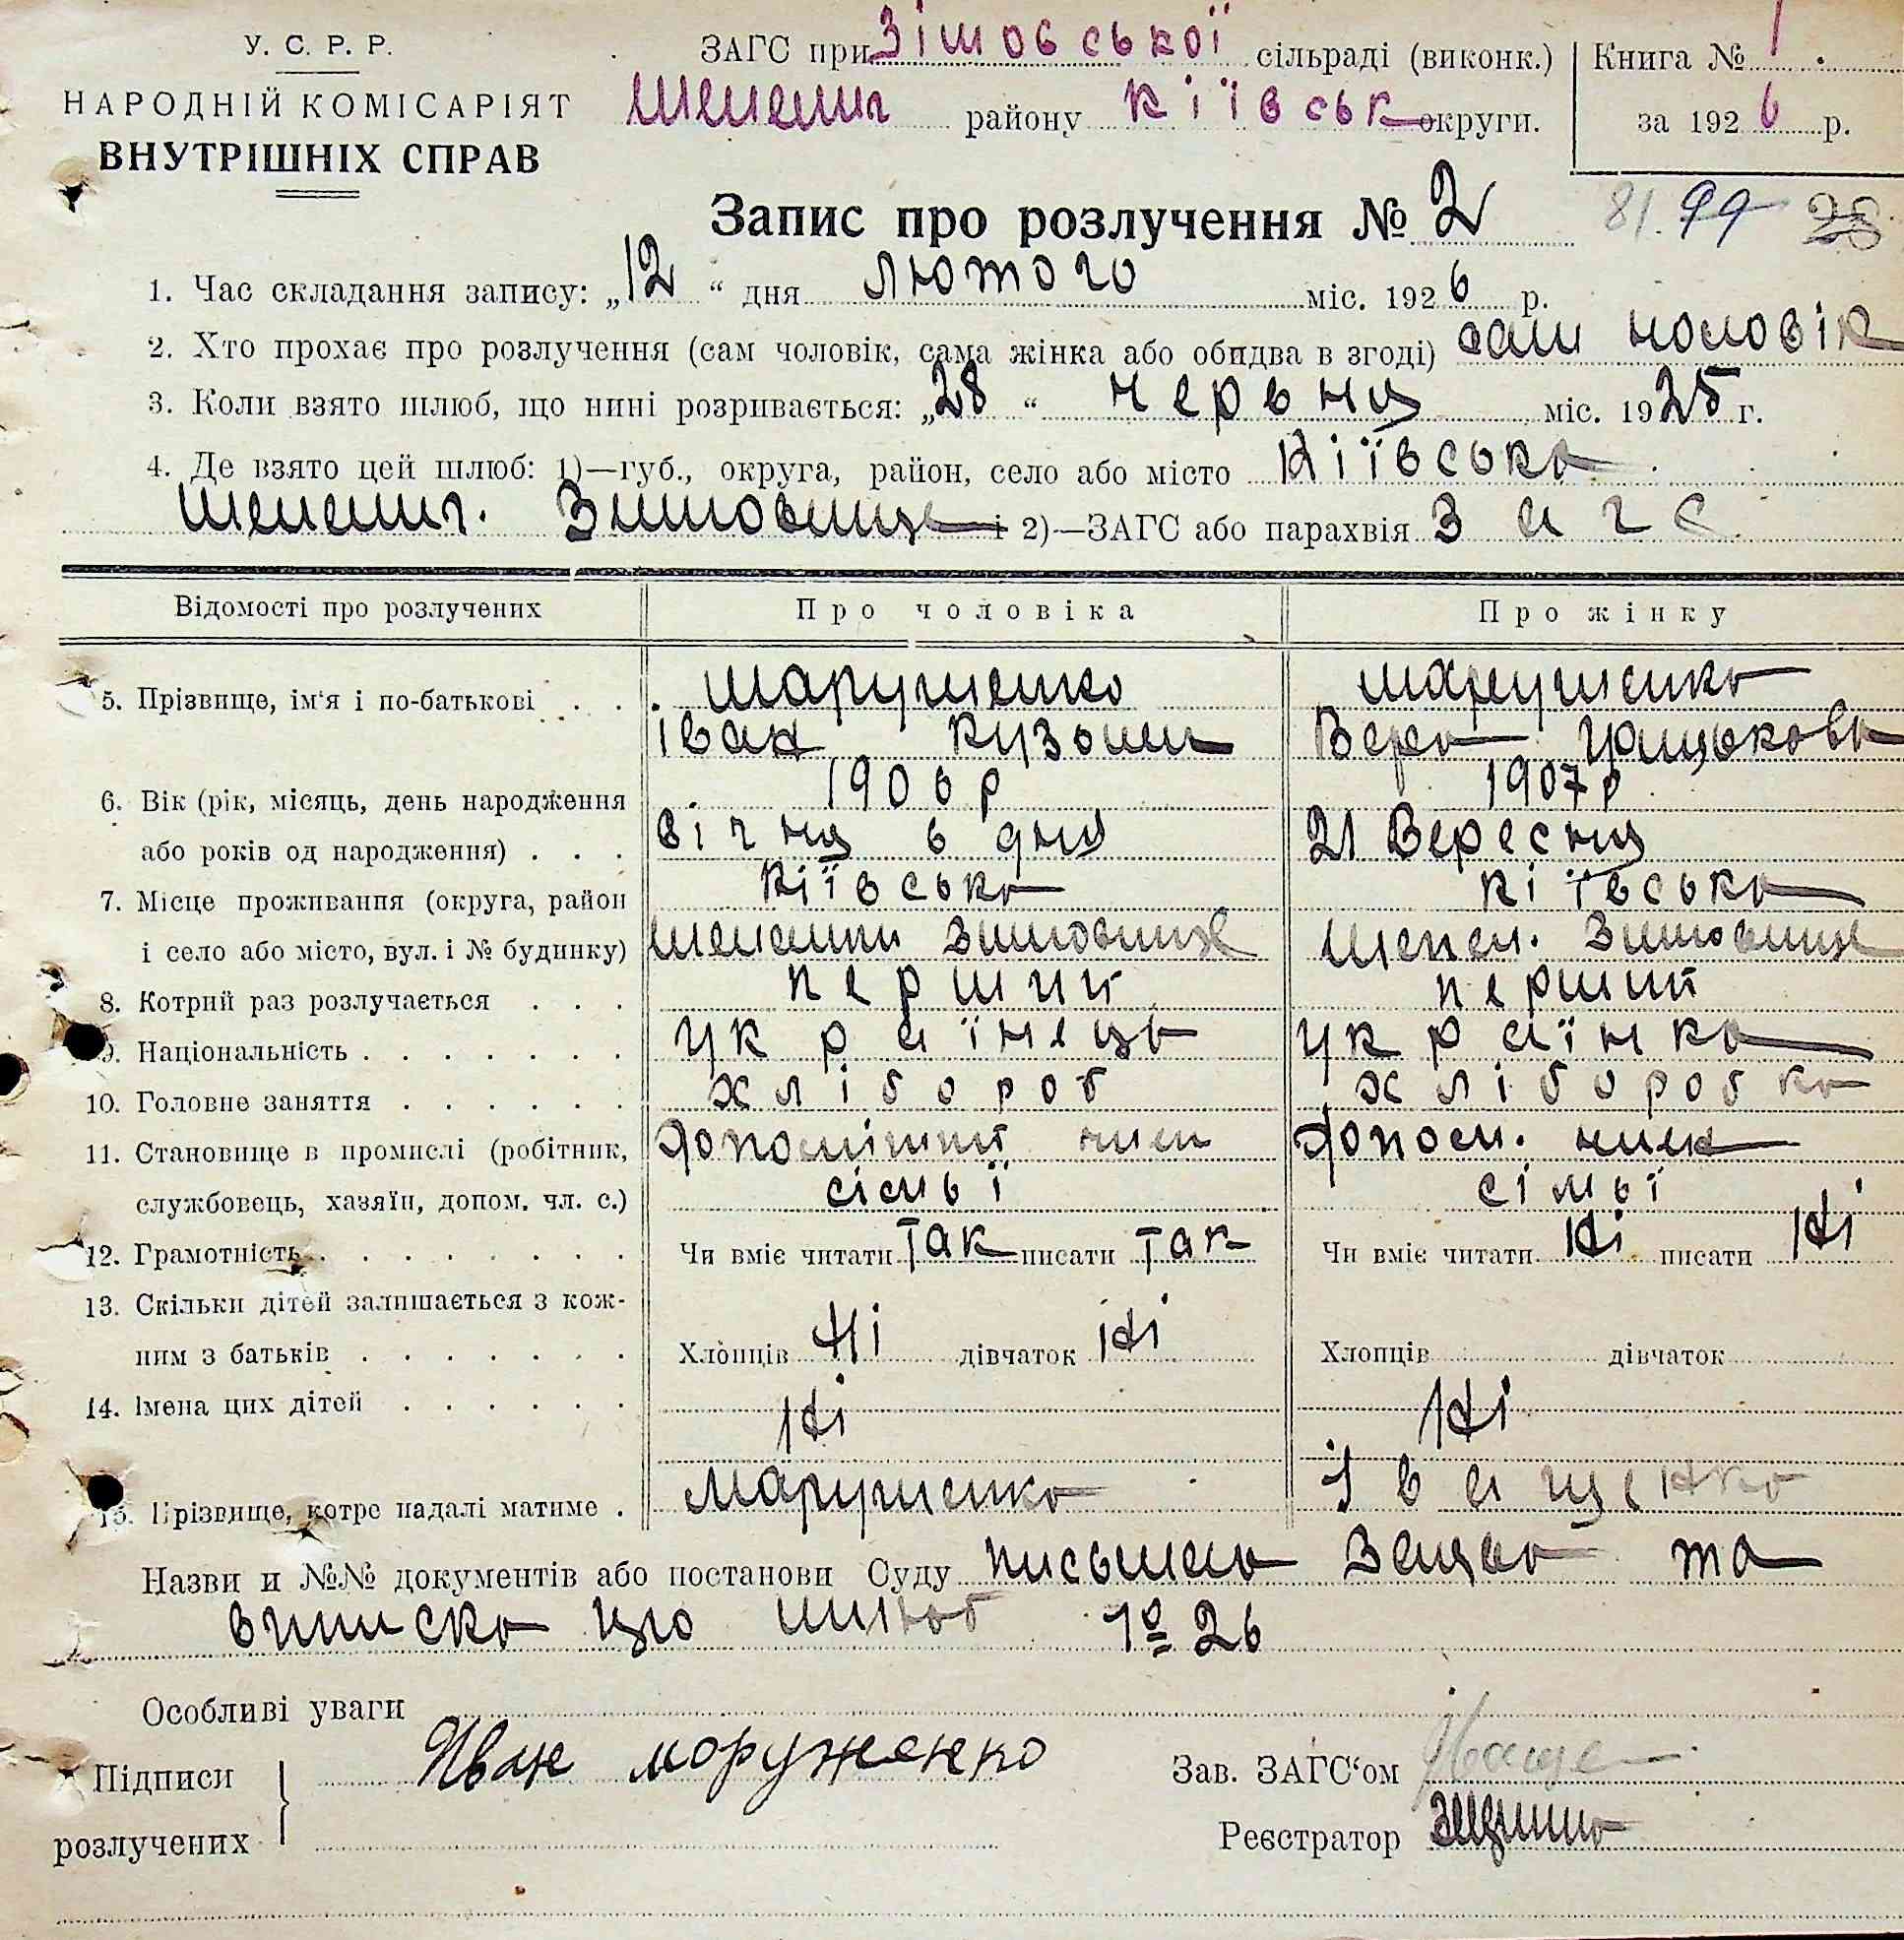 У. С. Р. Р.
НАРОДНІЙ КОМІСАРІЯТ
ВНУТРІШНІХ СПРАВ
ЗАГС при Зімовської сільраді (виконк.)
району Кіївськ округи.
Книга № 1
за 1926 р.
Запис про розлучення № 2
81. 99 28
1. Час складання запису: „12“ дня лютого міс. 1926 р.
2. Хто прохає про розлучення (сам чоловік, сама жінка або обидва в згоді) сам чоловік
3. Коли взято шлюб, що нині розривається: „28“ червня міс. 1925 г.
4. Де взято цей шлюб: 1)—губ., округа, район, село або місто Кіївська
Зимовище і 2)—ЗАГС або парахвія Загс
Відомості про розлучених Про чоловіка Про жінку
5. Прізвище, ім‘я і по-батькові . . . Марушенко Марушенко
Іван Кузьмич Вера Грицькова
6. Вік (рік, місяць, день народження 1906 р 1907 р
або років од народження) . . . січня 6 дня 21 Вересня
7. Місце проживання (округа, район Кіївська Кіївська
і село або місто, вул. і № будинку) Зимовище Зимовище
8. Котрий раз розлучається . . . перший перший
9. Національність . . . . . . . українець українка
10. Головне заняття . . . . . . хлібороб хлібородка
11. Становище в промислі (робітник, допомішний член допом. член
службовець, хазяїн, допом. чл. с.) сімьї сімьї
12. Грамотність . . . . . . . . Чи вміє читати так писати так Чи вміє читати ні писати ні
13. Скільки дітей залишається з кож-
ним з батьків . . . . . . . Хлопців ні дівчаток ні Хлопців дівчаток
14. Імена цих дітей . . . . . . ні ні
15. Прізвище, котре надалі матиме . Марушенко Іващенко
Назви и №№ документів або постанови Суду та
виписка шлюб 26
Особливі уваги
Підписи розлучених Иван моруженко
Зав. ЗАГС‘ом
Реєстратор